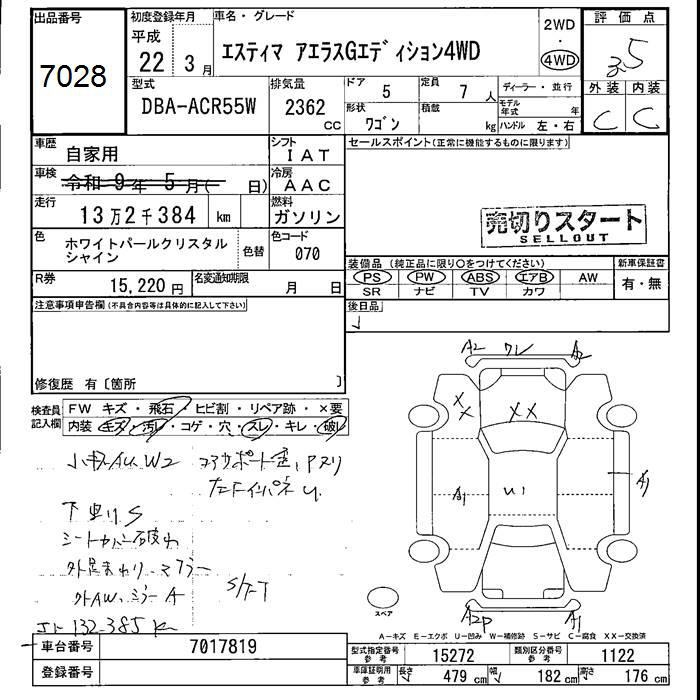 出品番号
7028
初度登録年月
平成
22 3月
車名・グレード
エスティマ アエラスGエディション4WD
2WD
・
4WD
評価点
3.5
外装 内装
C C
型式
DBA-ACR55W
排気量
2362
CC
ドア
5
定員
7 人
形状
ワゴン
積載
kg
ディーラー・並行
モデル年式 年
ハンドル 左・右
車歴
自家用
シフト
IAT
車検
令和 9年 5月( 日)
冷房
AAC
走行
13万2千384 km
燃料
ガソリン
色
ホワイトパールクリスタル
シャイン
色替
色コード
070
R券
15,220円
名変通知期限
月 日
セールスポイント(正常に機能するものに限ります)
売切りスタート
SELLOUT
装備品(純正品に限り○をつけてください)
PS PW ABS エアB AW
SR ナビ TV カワ
新車保証書
有・無
後日品
注意事項申告欄(不具合内容等は具体的に記入して下さい)
修復歴 有〔箇所 〕
検査員
記入欄
FW キズ・飛石・ヒビ割・リペア跡・×要
内装 キズ・汚レ・コゲ・穴・スレ・キレ・破レ
小キズAU.W2
下廻りS
シートカバー破れ
外足まわり、マフラー
外AW、ミラーA
S/T-T
132,385K
A2 ワレ A2
XX XX
A1 U1 A1
A2P A1
スペア
A-キズ E-エクボ U-凹み W-補修跡 S-サビ C-腐食 XX-交換済
車台番号
7017819
登録番号
型式指定番号
参考
15272
類別区分番号
参考
1122
車庫証明用
参考
長さ 479 cm 幅 182 cm 高さ 176 cm